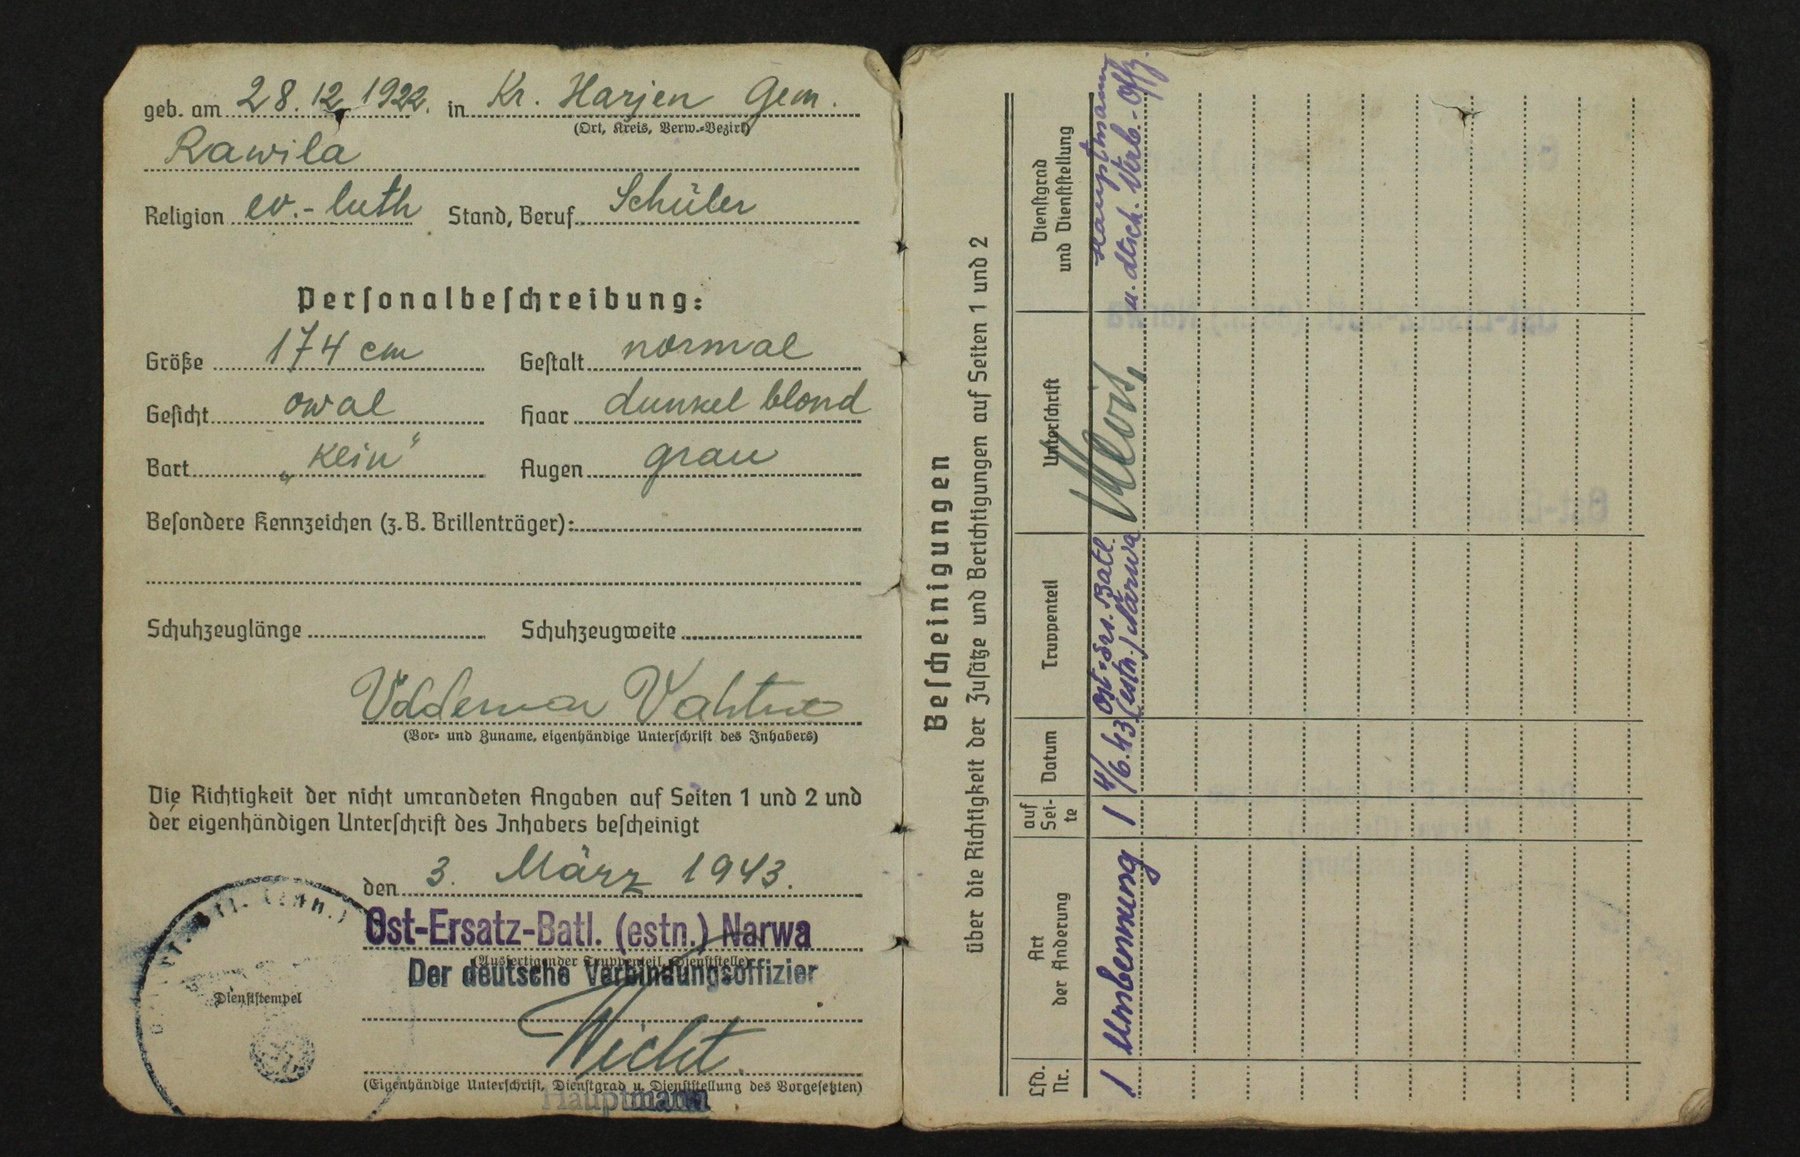 geb. am 28. 12. 1922. in Kr. Harjen Gem.
(Ort, Kreis, Verw.-Bezirk)
Rawila
Religion ev.-luth Stand, Beruf Schüler
Personalbeschreibung:
Größe 174 cm Gestalt normal
Gesicht owal Haar dunkel blond
Bart „kein“ Augen grau
Besondere Kennzeichen (z.B. Brillenträger):
Schuhzeuglänge Schuhzeugweite
Voldemar
(Vor- und Zuname, eigenhändige Unterschrift des Inhabers)
Die Richtigkeit der nicht umrandeten Angaben auf Seiten 1 und 2 und
der eigenhändigen Unterschrift des Inhabers bescheinigt
den 3. März 1943.
Ost-Ersatz-Batl. (estn.) Narwa
(Ausfertigender Truppenteil, Dienststelle)
Der deutsche Verbindungsoffizier
Dienststempel
(Eigenhändige Unterschrift, Dienstgrad u. Dienststellung des Vorgesetzten)
Hauptmann
Bescheinigungen
über die Richtigkeit der Zusätze und Berichtigungen auf Seiten 1 und 2
Lfd. Nr.
Art der Änderung
auf Sei-te
Datum
Truppenteil
Unterschrift
Dienstgrad und Dienststellung
1 Umbennung 1 4/6.43 Ost-Ers. Batl. (estn.) Narwa Hauptmann u. dtsch. Verb.-Offz.